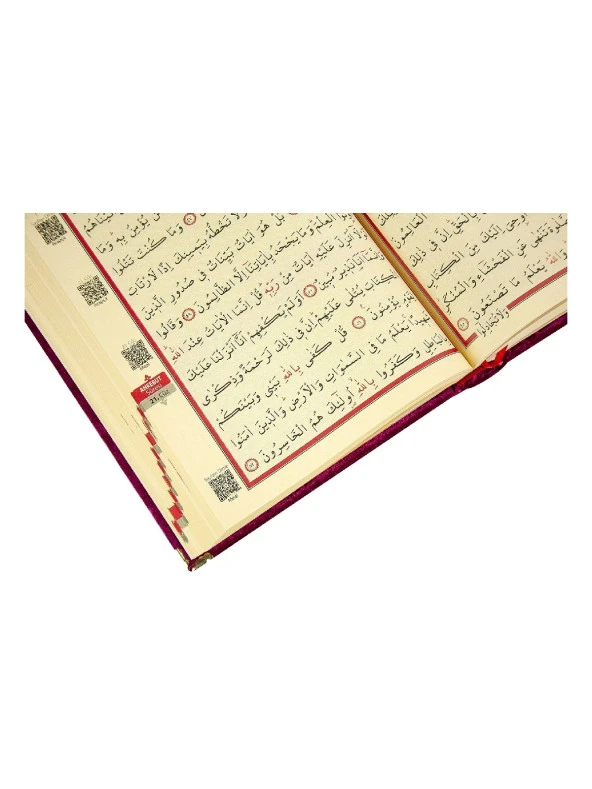 الْعَالِمُونَ
بِالْحَقِّ اِنَّ فِي ذٰلِكَ
اُوحِيَ اِلَيْكَ مِنَ الْكِتَابِ
تَنْهٰى عَنِ الْفَحْشَاءِ وَالْمُنْكَرِ
اللّٰهُ يَعْلَمُ مَا تَصْنَعُونَ
وَلَا تُجَادِلُوا
يُؤْمِنُ بِهِ وَمَا
وَمَا كُنْتَ تَتْلُوا
وَلَا تَخُطُّهُ بِيَمِينِكَ اِذًا لَارْتَابَ
بَلْ هُوَ اٰيَاتٌ بَيِّنَاتٌ فِي صُدُورِ الَّذِينَ
اُوتُوا الْعِلْمَ وَمَا يَجْحَدُ بِاٰيَاتِنَا اِلَّا الظَّالِمُونَ ٤٩ وَقَالُوا
لَوْلَا اُنْزِلَ عَلَيْهِ اٰيَاتٌ مِنْ رَبِّهِ قُلْ اِنَّمَا الْاٰيَاتُ عِنْدَ اللّٰهِ
وَاِنَّمَا اَنَا نَذِيرٌ مُبِينٌ ٥٠ اَوَلَمْ يَكْفِهِمْ اَنَّا اَنْزَلْنَا عَلَيْكَ
الْكِتَابَ يُتْلٰى عَلَيْهِمْ اِنَّ فِي ذٰلِكَ لَرَحْمَةً وَذِكْرٰى
لِقَوْمٍ يُؤْمِنُونَ ٥١ قُلْ كَفٰى بِاللّٰهِ بَيْنِي وَبَيْنَكُمْ
شَهِيدًا يَعْلَمُ مَا فِي السَّمٰوَاتِ وَالْاَرْضِ وَالَّذِينَ اٰمَنُوا
بِالْبَاطِلِ وَكَفَرُوا بِاللّٰهِ اُولٰئِكَ هُمُ الْخَاسِرُونَ ٥٢
ANKEBUT
Sûresi
21. Cüz